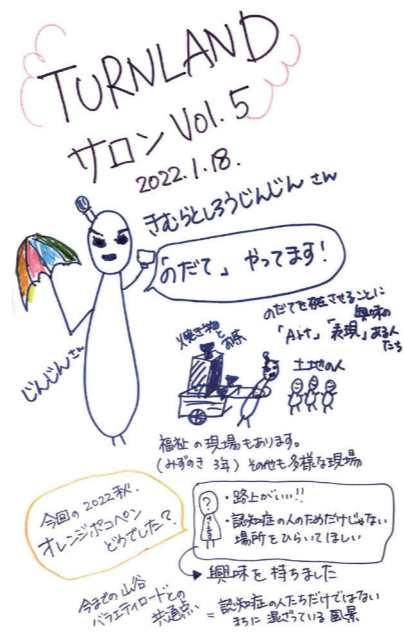 TURNLAND
サロン Vol.5
2022.1.18.
きむらとしろうじんじん さん
「のだて」やってます!
じんじんさん
焼き物と
お茶
のだてを存在させることに
興味の
「Art」「表現」ある人
たち
土地の人
福祉の現場もあります。
(みずのき 3年) その他も多様な現場
今回の2022秋、
オレンジボコペン
どうでした?
?
・路上がいい!!
・認知症の人のためだけじゃない
場所をひらいてほしい
興味を持ちました
今までの山谷
バラエティロードとの
共通点
= 認知症の人たちだけではない
まちに混ざっている風景